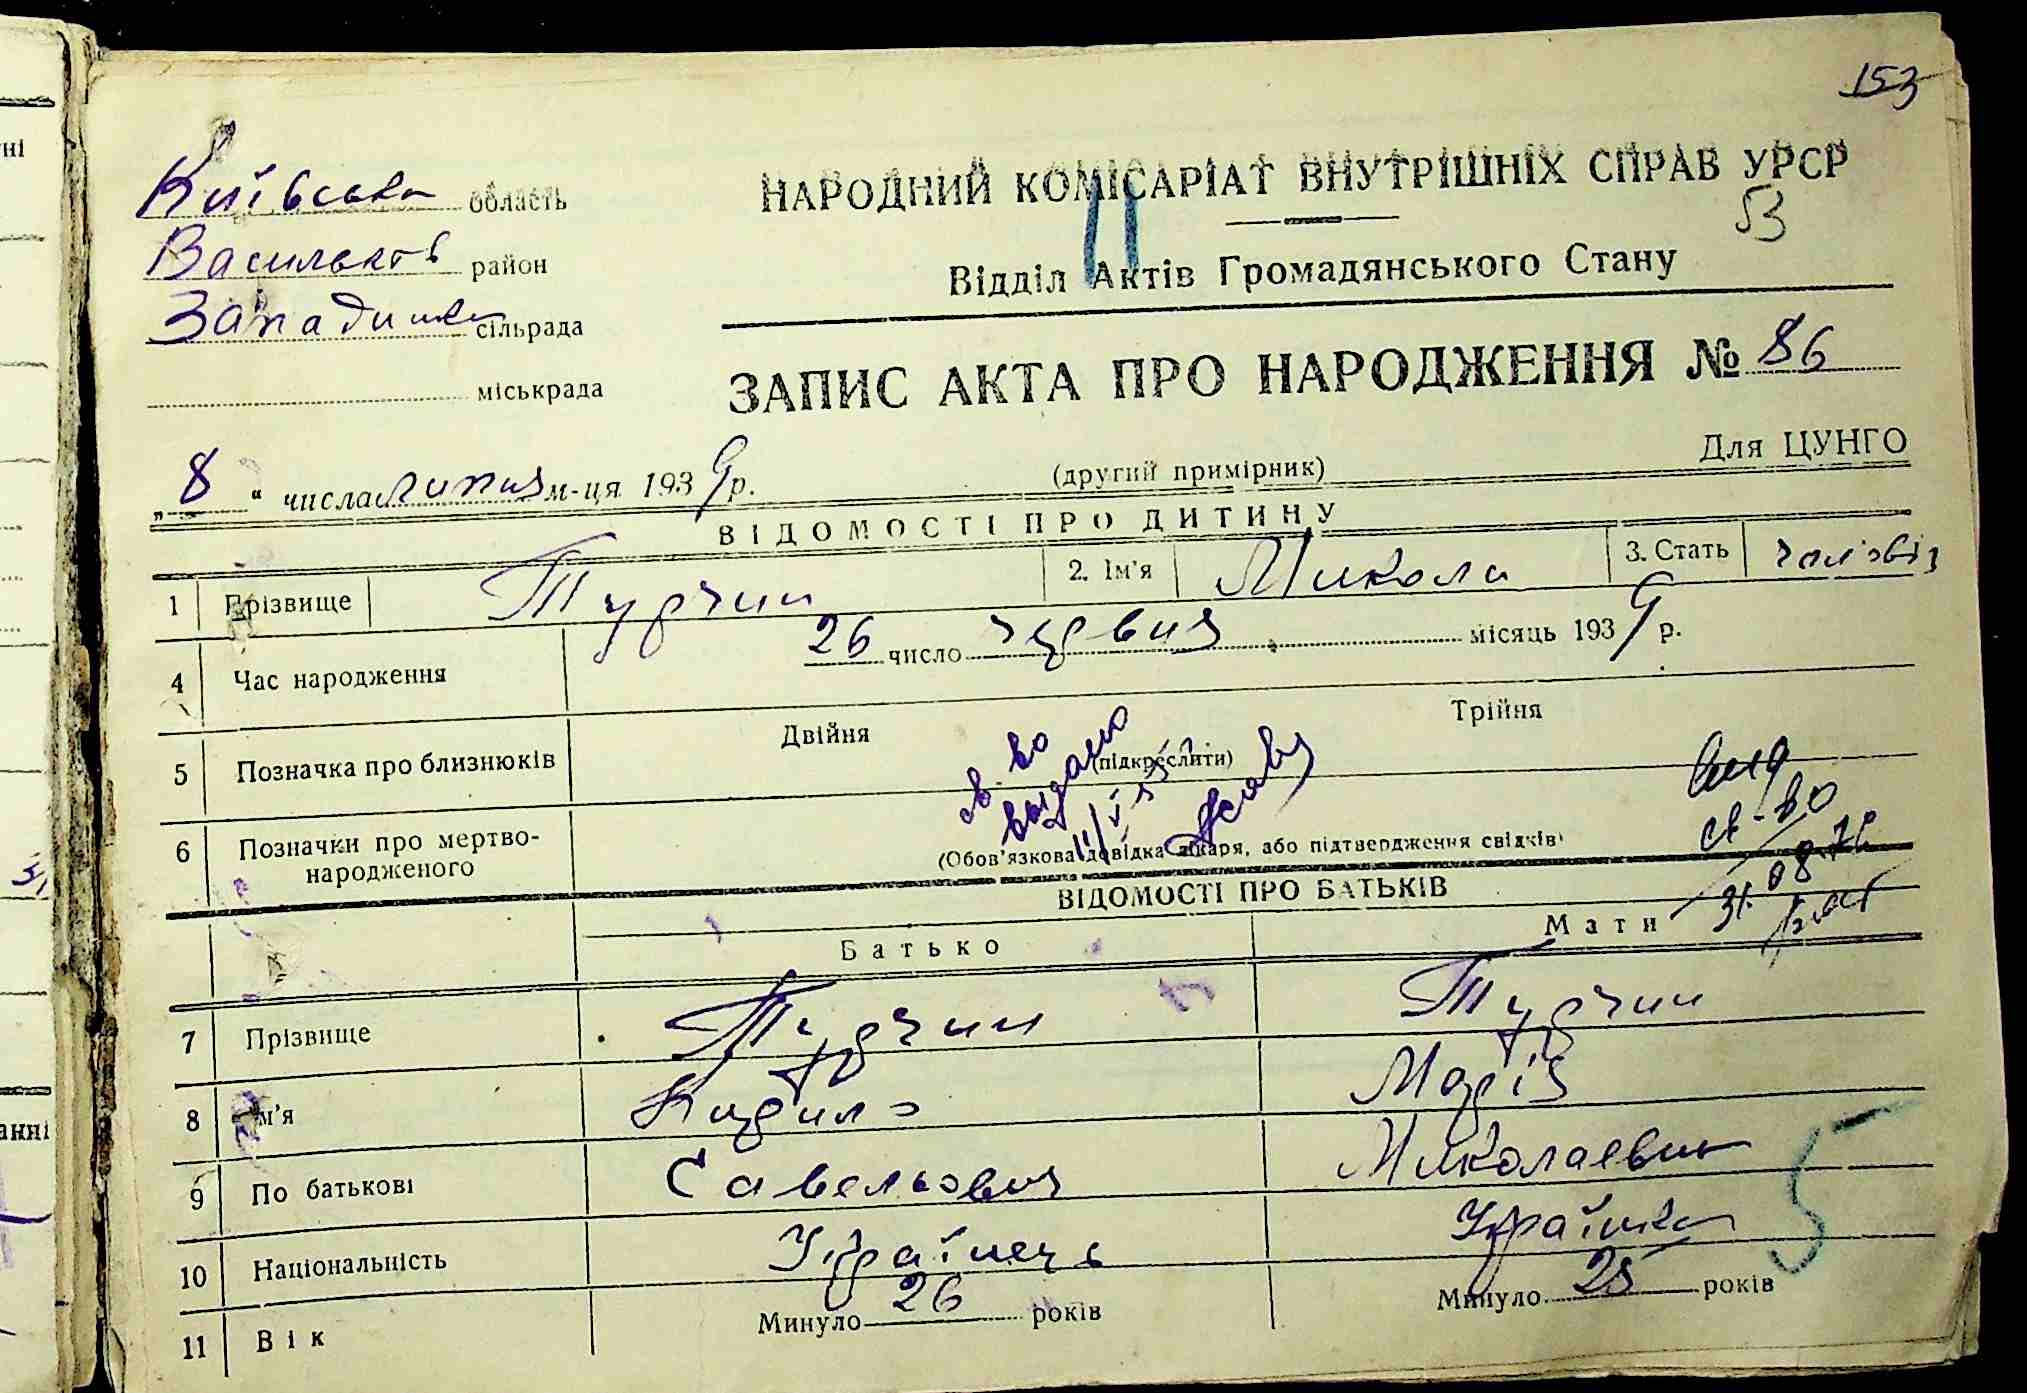 153
Київська область
Васильків район
Западинка сільрада
міськрада
НАРОДНИЙ КОМІСАРІАТ ВНУТРІШНІХ СПРАВ УРСР
Відділ Актів Громадянського Стану
53
ЗАПИС АКТА ПРО НАРОДЖЕННЯ № 86
„ 8 “ числа липня м-ця 1939 р.
(другий примірник)
Для ЦУНГО
ВІДОМОСТІ ПРО ДИТИНУ
1 Прізвище Турчин 2. Ім'я Микола 3. Стать
4 Час народження 26 число червня місяць 1939 р.
5 Позначка про близнюків Двійня (підкреслити) Трійня
св-во
выдано
6 Позначки про мертво-
народженого
(Обов'язкова довідка лікаря, або підтвердження свідків)
св-во
31.08.76
ВІДОМОСТІ ПРО БАТЬКІВ
Батько Мати
7 Прізвище Турчин Турчин
8 Ім'я Кирило Марія
9 По батькові Савельович Миколаевна
10 Національність Українець Українка
11 Вік Минуло 26 років Минуло 25 років
5
анні